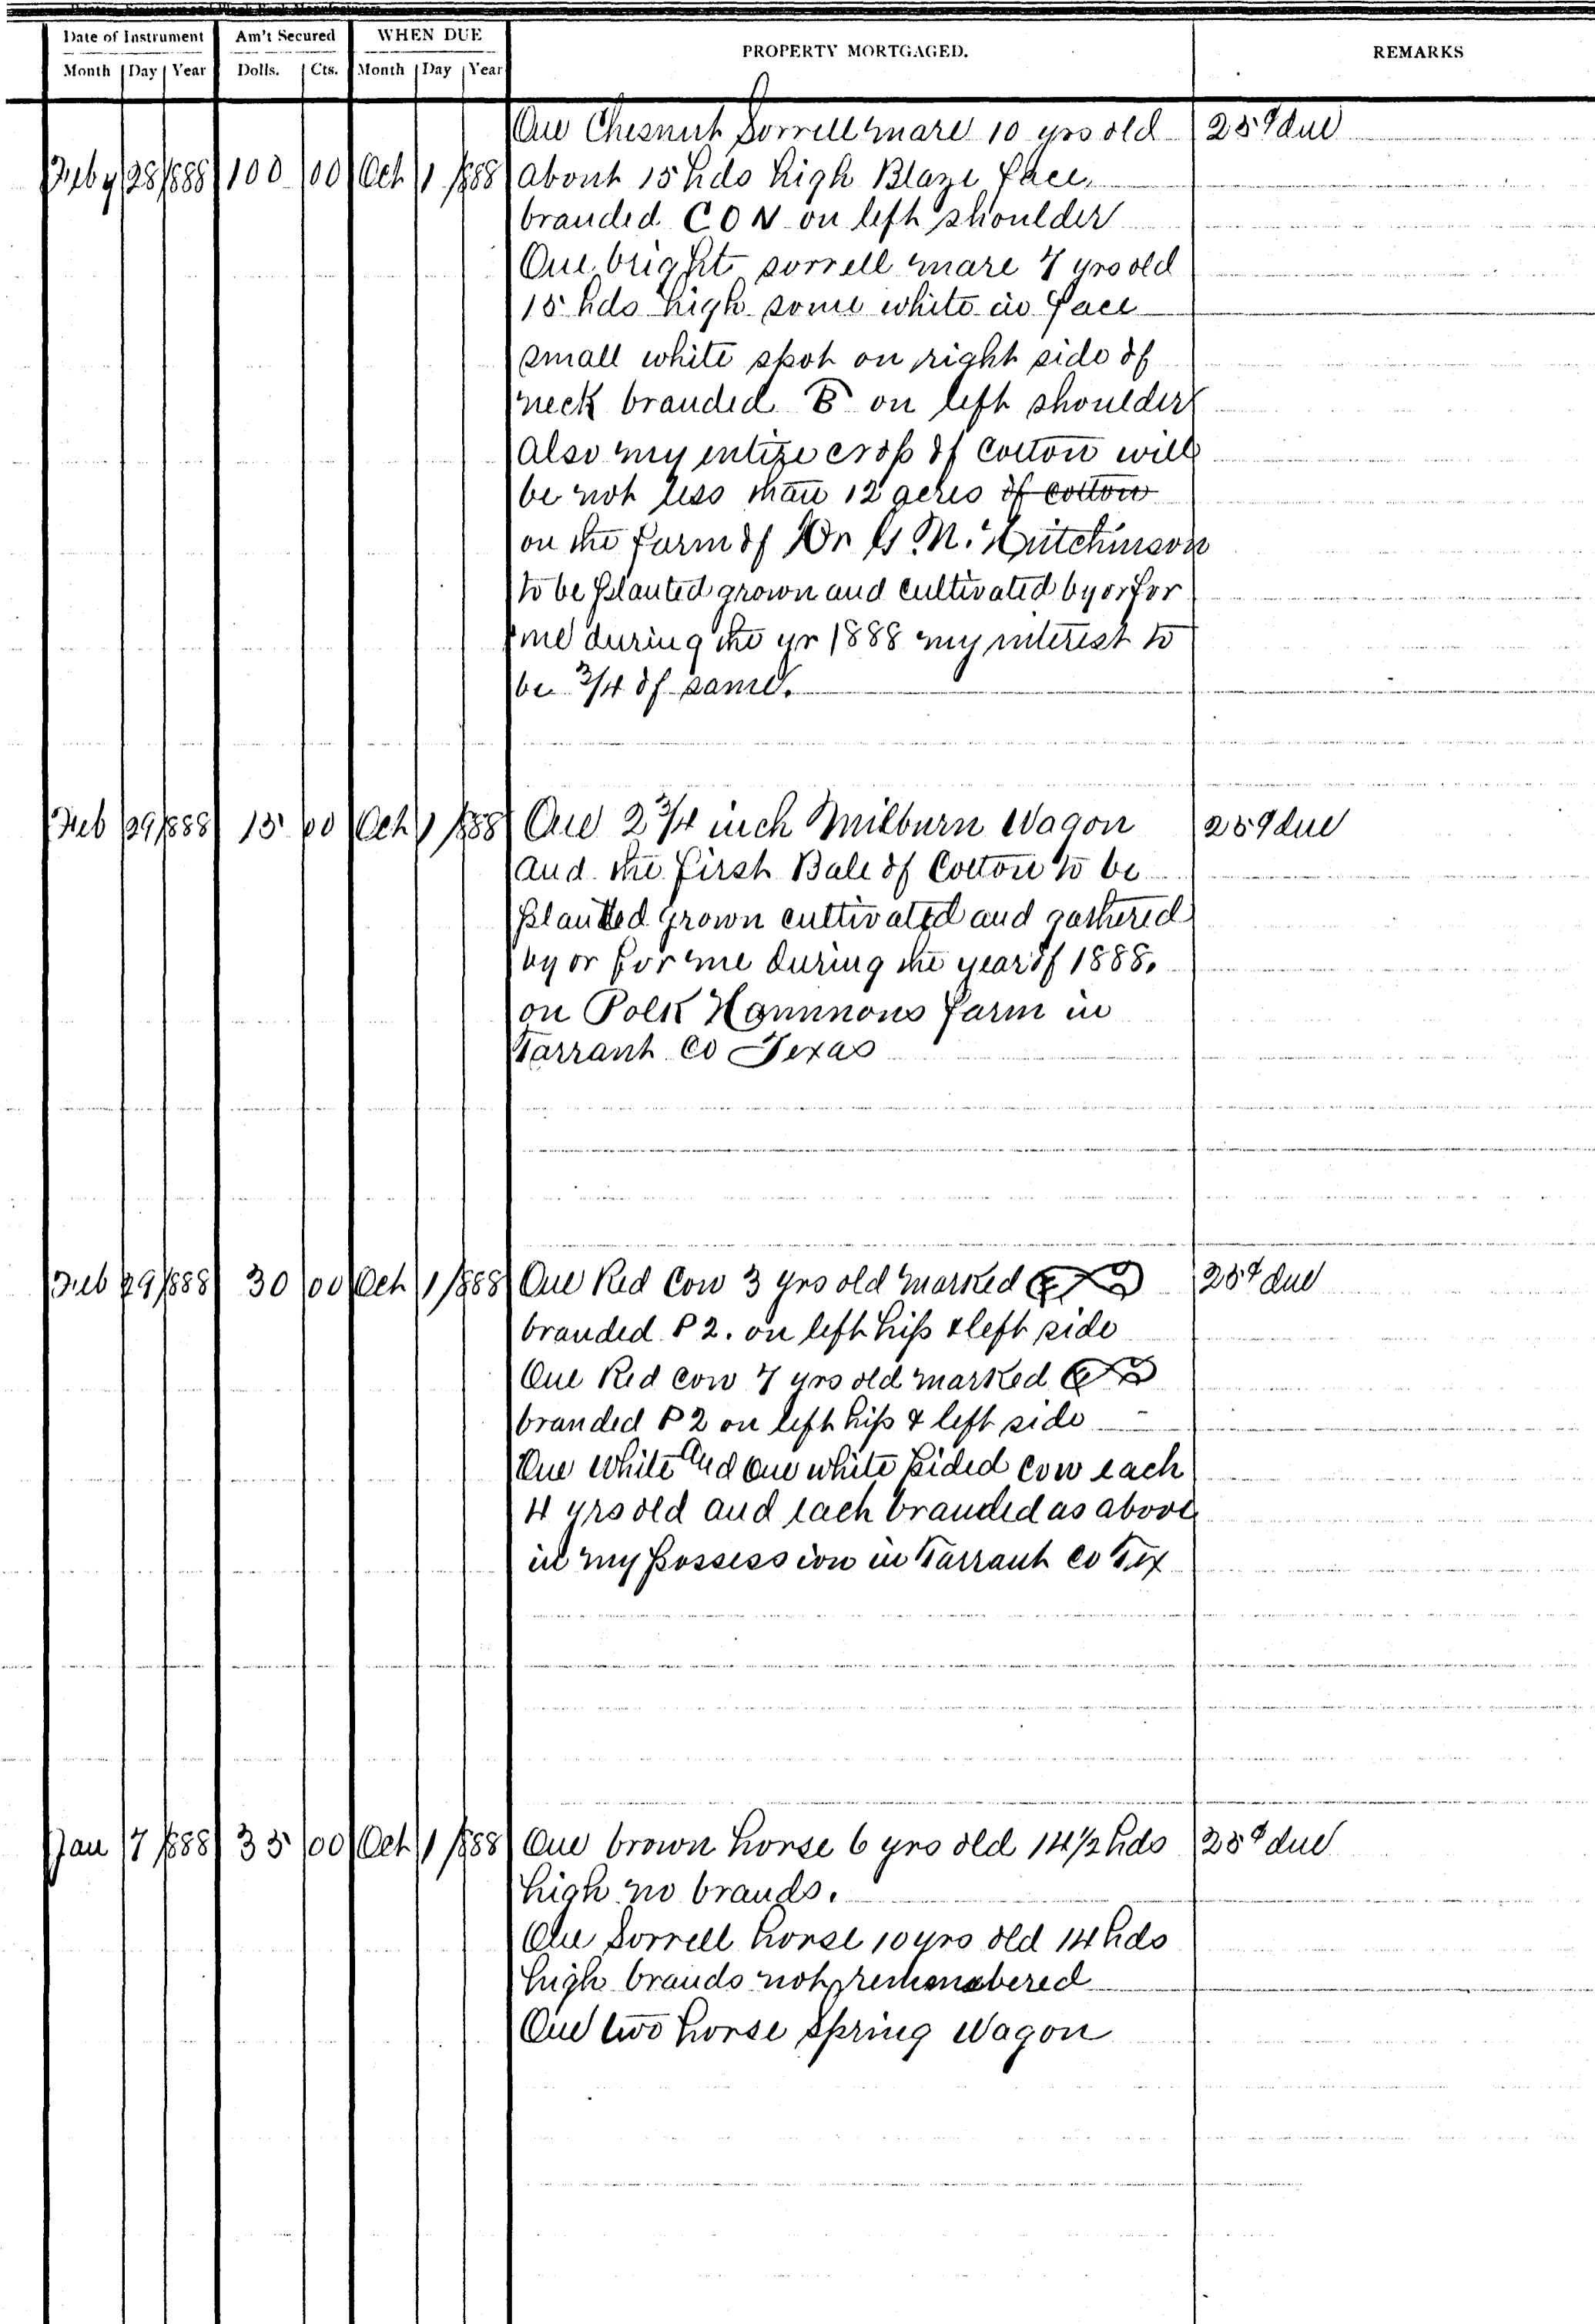 Date of Instrument Am't Secured WHEN DUE PROPERTY MORTGAGED. REMARKS
Month Day Year Dolls. Cts. Month Day Year
One Chesnut Sorrell mare 10 yrs old 25¢ due
Feby 28 1888 100 00 Oct 1 1888 about 15 hds high Blaze face,
branded CON on left shoulder
One bright sorrell mare 7 yrs old
15 hds high some white in face
small white spot on right side of
neck branded B on left shoulder
Also my entire crop of Cotton will
be not less than 12 acres of cotton
on the farm of Dr G M. Hutchinson
to be planted grown and cultivated by or for
me during the yr 1888 my interest to
be 3/4 of same.
Feb 29 1888 15 00 Oct 1 1888 One 2 3/4 inch Milburn Wagon 25¢ due
and the first Bale of Cotton to be
planted grown cultivated and gathered
by or for me during the year of 1888.
on Polk farm in
Tarrant Co Texas
Feb 29 1888 30 00 Oct 1 1888 One Red Cow 3 yrs old marked 25¢ due
branded P 2. on left hip & left side
One Red cow 7 yrs old marked
branded P 2 on left hip & left side
One white and one white sided cow each
4 yrs old and each branded as above
in my possession in Tarrant Co Tex
Jan 17 1888 35 00 Oct 1 1888 One brown horse 6 yrs old 14 1/2 hds 25¢ due
high no brands.
One Sorrell horse 10 yrs old 14 hds
high brands not remembered
One two horse spring Wagon